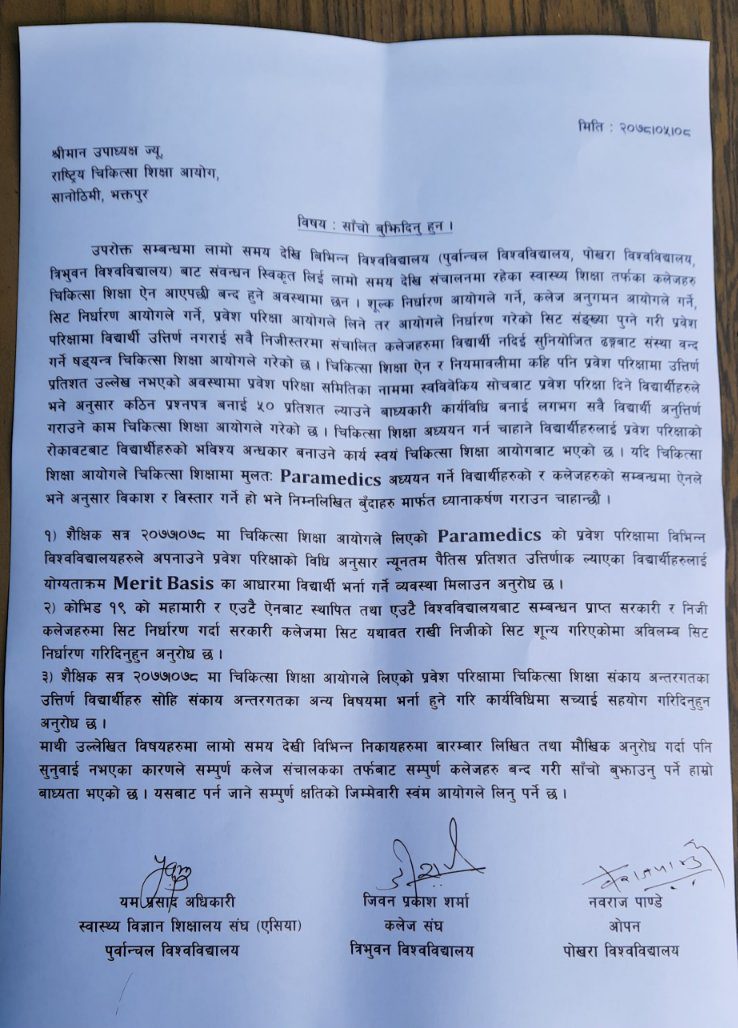 मिति : २०७८।०५।०८
श्रीमान उपाध्यक्ष ज्यू,
राष्ट्रिय चिकित्सा शिक्षा आयोग,
सानोठिमी, भक्तपुर
विषय : साँचो बुझिदिनु हुन ।
उपरोक्त सम्बन्धमा लामो समय देखि बिभिन्न विश्वविद्यालय (पुर्वान्चल विश्वविद्यालय, पोखरा विश्वविद्यालय,
त्रिभुवन विश्वविद्यालय) बाट संवन्धन स्विकृत लिई लामो समय देखि संचालनमा रहेका स्वास्थ्य शिक्षा तर्फका कलेजहरु
चिकित्सा शिक्षा ऐन आएपछी बन्द हुने अवस्थामा छन । शूल्क निर्धारण आयोगले गर्ने, कलेज अनुगमन आयोगले गर्ने,
सिट निर्धारण आयोगले गर्ने, प्रवेश परिक्षा आयोगले लिने तर आयोगले निर्धारण गरेको सिट संङ्ख्या पुग्ने गरी प्रवेश
परिक्षामा विद्यार्थी उत्तिर्ण नगराई सवै निजीस्तरमा संचालित कलेजहरुमा विद्यार्थी नदिई सुनियोजित ढङ्गबाट संस्था वन्द
गर्ने षड्यन्त्र चिकित्सा शिक्षा आयोगले गरेको छ । चिकित्सा शिक्षा ऐन र नियमावलीमा कहि पनि प्रवेश परिक्षामा उत्तिर्ण
प्रतिशत उल्लेख नभएको अवस्थामा प्रवेश परिक्षा समितिका नाममा स्वविवेकिय सोचबाट प्रवेश परिक्षा दिने विद्यार्थीहरुले
भने अनुसार कठिन प्रश्नपत्र बनाई ५० प्रतिशत ल्याउने बाध्यकारी कार्यविधि बनाई लगभग सवै विद्यार्थी अनुत्तिर्ण
गराउने काम चिकित्सा शिक्षा आयोगले गरेको छ । चिकित्सा शिक्षा अध्ययन गर्न चाहाने विद्यार्थीहरुलाई प्रवेश परिक्षाको
रोकावटबाट विद्यार्थीहरुको भविश्य अन्धकार बनाउने कार्य स्वयं चिकित्सा शिक्षा आयोगबाट भएको छ । यदि चिकित्सा
शिक्षा आयोगले चिकित्सा शिक्षामा मुलतः Paramedics अध्ययन गर्ने विद्यार्थीहरुको र कलेजहरुको सम्बन्धमा ऐनले
भने अनुसार विकाश र विस्तार गर्ने हो भने निम्नलिखित बुँदाहरु मार्फत ध्यानाकर्षण गराउन चाहान्छौ ।
१) शैक्षिक सत्र २०७७।०७८ मा चिकित्सा शिक्षा आयोगले लिएको Paramedics को प्रवेश परिक्षामा विभिन्न
विश्वविद्यालयहरुले अपनाउने प्रवेश परिक्षाको विधि अनुसार न्यूनतम पैतिस प्रतिशत उत्तिर्णाक ल्याएका विद्यार्थीहरुलाई
योग्यताक्रम Merit Basis का आधारमा विद्यार्थी भर्ना गर्ने व्यवस्था मिलाउन अनुरोध छ ।
२) कोभिड १९ को महामारी र एउटै ऐनबाट स्थापित तथा एउटै विश्वविद्यालयबाट सम्बन्धन प्राप्त सरकारी र निजी
कलेजहरुमा सिट निर्धारण गर्दा सरकारी कलेजमा सिट यथावत राखी निजीको सिट शून्य गरिएकोमा अविलम्ब सिट
निर्धारण गरिदिनुहुन अनुरोध छ ।
३) शैक्षिक सत्र २०७७।०७८ मा चिकित्सा शिक्षा आयोगले लिएको प्रवेश परिक्षामा चिकित्सा शिक्षा संकाय अन्तरगतका
उत्तिर्ण विद्यार्थीहरु सोहि संकाय अन्तरगतका अन्य विषयमा भर्ना हुने गरि कार्यविधिमा सच्याई सहयोग गरिदिनुहुन
अनुरोध छ ।
माथी उल्लेखित विषयहरुमा लामो समय देखी विभिन्न निकायहरुमा बारम्बार लिखित तथा मौखिक अनुरोध गर्दा पनि
सुनुवाई नभएका कारणले सम्पुर्ण कलेज संचालकका तर्फबाट सम्पुर्ण कलेजहरु बन्द गरी साँचो बुझाउनु पर्ने हाम्रो
बाध्यता भएको छ । यसबाट पर्न जाने सम्पुर्ण क्षतिको जिम्मेवारी स्वंम आयोगले लिनु पर्ने छ ।
यम प्रसाद अधिकारी जिवन प्रकाश शर्मा नवराज पाण्डे
स्वास्थ्य विज्ञान शिक्षालय संघ (एसिया) कलेज संघ ओपन
पुर्वान्चल विश्वविद्यालय त्रिभुवन विश्वविद्यालय पोखरा विश्वविद्यालय